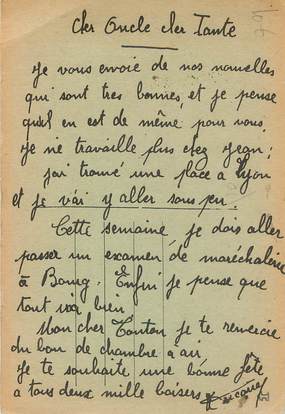 Cher Oncle Cher Tante
Je vous envoie de nos nouvelles
qui sont tres bonnes, et je pense
qu'il en est de même pour vous.
Je ne travaille plus chez Jean;
j'ai trouvé une place a Lyon
et je vais y aller sous peu.
Cette semaine, je dois aller
passer un examen de maréchalerie
à Bourg. Enfin je pense que
tout va bien
Mon cher Tonton je te remercie
du bon de chambre a air.
Je te souhaite une bonne fête
a tous deux mille baisers